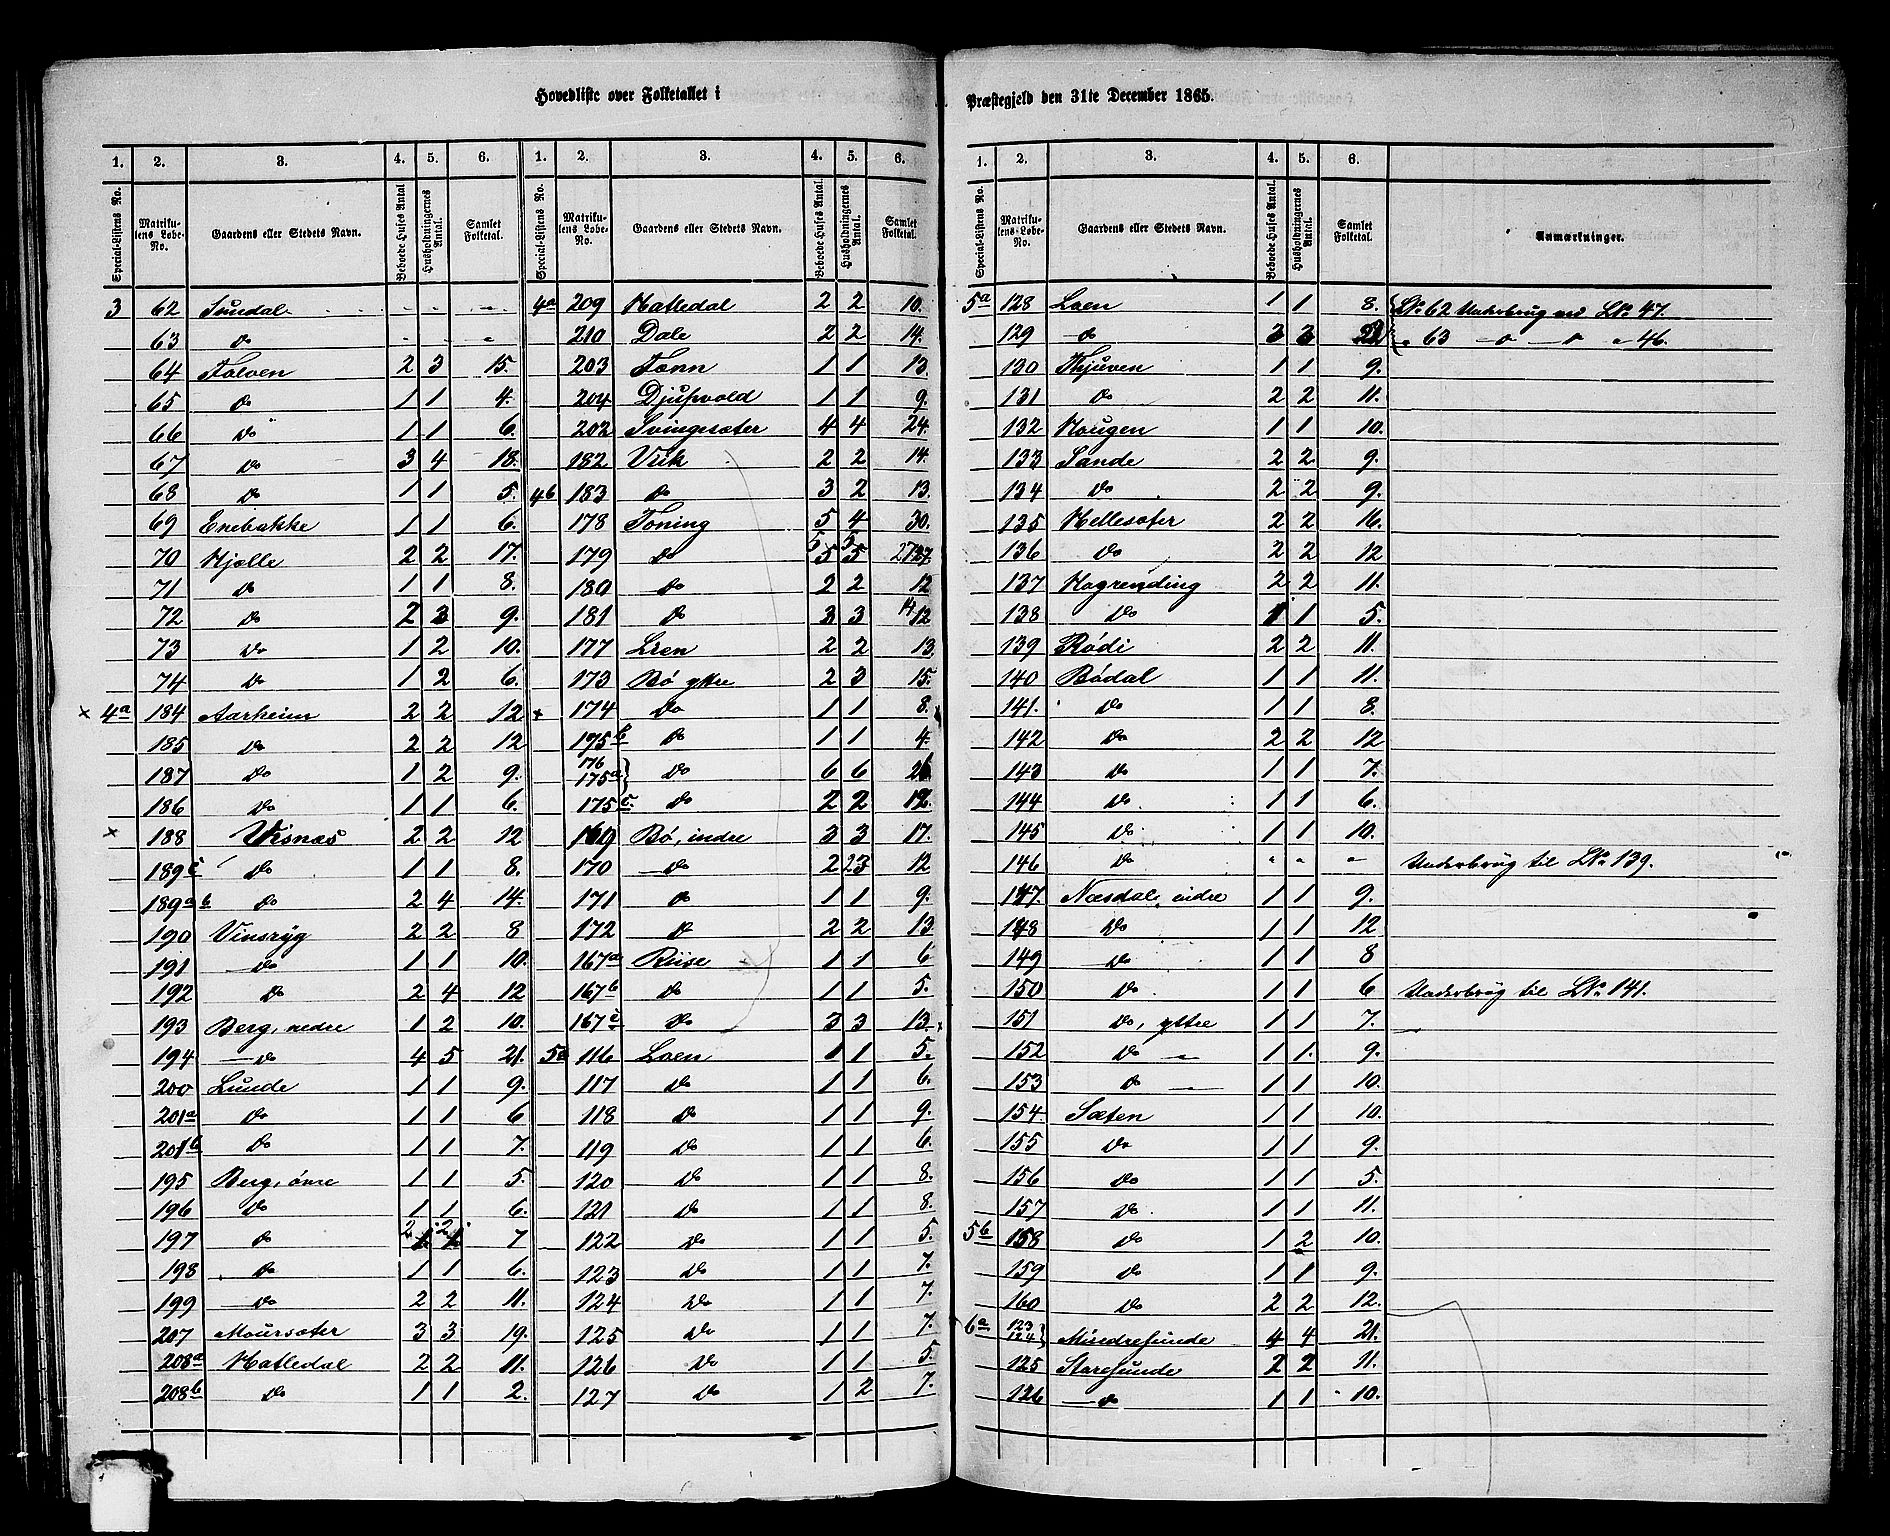 Hovedliste over Folketallet i
Præstegjeld den 31te December 1865.
1. 2. 3. 4. 5. 6.
Special-Listens No. Matrikulens Løbe-No. Gaardens eller Stedets Navn. Beboede Huses Antal Husholdningernes Antal. Samlet Folketal.
3 62 Sundal - - -
63 do - - -
64 Folven 2 3 15.
65 do 1 1 4.
66 do 1 1 6.
67 do 3 4 18.
68 do 1 1 5.
69 Enebakke 1 1 6.
70 Hjelle 2 2 17.
71 do 1 1 8.
72 do 2 3 9.
73 do 1 2 10.
74 do 1 2 6.
× 4a 184 Aarheim 2 2 12
185 do 2 2 12
187 do 1 2 9.
186 do 1 1 6.
× 188 Visnæs 2 2 12
189c do 1 1 8.
189a b do 2 4 14.
190 Vinsryg 2 2 8
191 do 1 1 10.
192 do 2 4 12
193 Berg, nedre 1 2 10.
194 do 4 5 21.
200 Lunde 1 1 9.
201a do 1 1 6
201b do 1 1 7.
195 Berg, øvre 1 1 5.
196 do 1 1 6.
197 do 2 2 7
198 do 1 1 6.
199 do 2 2 11.
207 Moursæter 3 3 19.
208a Hatledal 2 2 11.
208b do 1 1 2.
1. 2. 3. 4. 5. 6.
Special-Listens No. Matrikulens Løbe-No. Gaardens eller Stedets Navn. Beboede Huses Antal. Husholdningernes Antal. Samlet Folketal.
4a 209 Hatledal 2 2 10.
210 Dale 2 2 14.
203 Tonn 1 1 13.
204 Djupvold 1 1 9.
202 Svingesæter 4 4 24.
182 Viik 2 2 14.
4b 183 do 3 2 13.
178 Toning 5 4 30.
179 do 5 5 27.
180 do 2 2 12
181 do 3 3 14
177 Lien 2 2 13
173 Bø yttre 2 3 15.
× 174 do 1 1 8.
175b do 1 1 4.
176
175a } do 6 6 26
175c. do 2 2 12.
169 Bø, indre 3 3 17.
170 do 2 23 12
171 do 1 1 9.
172 do 2 2 13
167a Riise 1 1 6
167b do 1 1 5.
167c do 3 3 13.
5a 116 Loen 1 1 5.
117 do 1 1 6.
118 do 1 1 9.
119 do 1 1 6.
120 do 1 1 8.
121 do 1 1 8.
122 do 1 1 5.
123 do 1 1 7.
124 do 1 1 7.
125 do 1 1 7.
126 do 1 1 5.
127 do 1 2 7.
1. 2. 3. 4. 5. 6.
Special-Listens No. Matrikulens Løbe-No. Gaardens eller Stedets Navn. Beboede Huses Antal. Husholdningernes Antal. Samlet Folketal. Anmærkninger.
5a 128 Loen 1 1 8. LNo 62 Underbrug med LNo 47.
129 do 3 3 22 " 63 -o -o " 46.
130 Thjuven 1 1 9.
131 do 2 2 11.
132 Hougen 1 1 10.
133 Sande 2 2 9.
134 do 2 2 9.
135 Hellesæter 2 2 16.
136 do 2 2 12
137 Hogrending 2 2 11.
138 do 1 1 5.
139 Rødi 2 2 11.
140 Bødal 1 1 11.
141. do 1 1 8.
142 do 2 2 12
143 do 1 1 7.
144 do 1 1 6.
145 do 1 1 10.
146 do " " " Underbrug til LNo 139.
147. Næsdal, indre 1 1 9.
148 do 1 1 12
149 do 1 1 8
150 do 1 1 6 Underbrug til LNo 141.
151 do, yttre 1 1 7.
152 do " 1 1. 9.
153 do 1 1 10.
154. Sæten 1 1 10.
155 do 1 1 9.
156 do 1 1 5.
157 do 1 1 11.
5b 158 do 1 2 10.
159 do 1 1 9.
160 do 2 2 12.
6a 123
124 } Misedresunde 4 4 21.
125 Staresunde 2 2 11.
126 do 1 1 10.